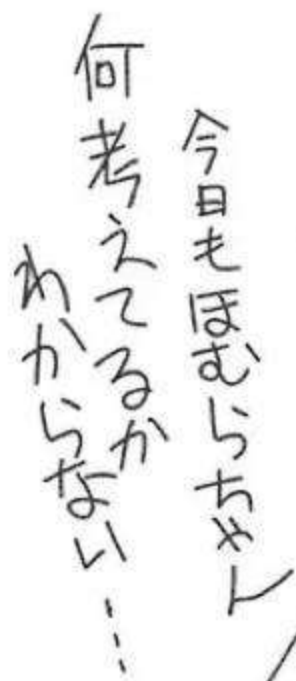 今日もほむらちゃん
何考えてるか
わからない…